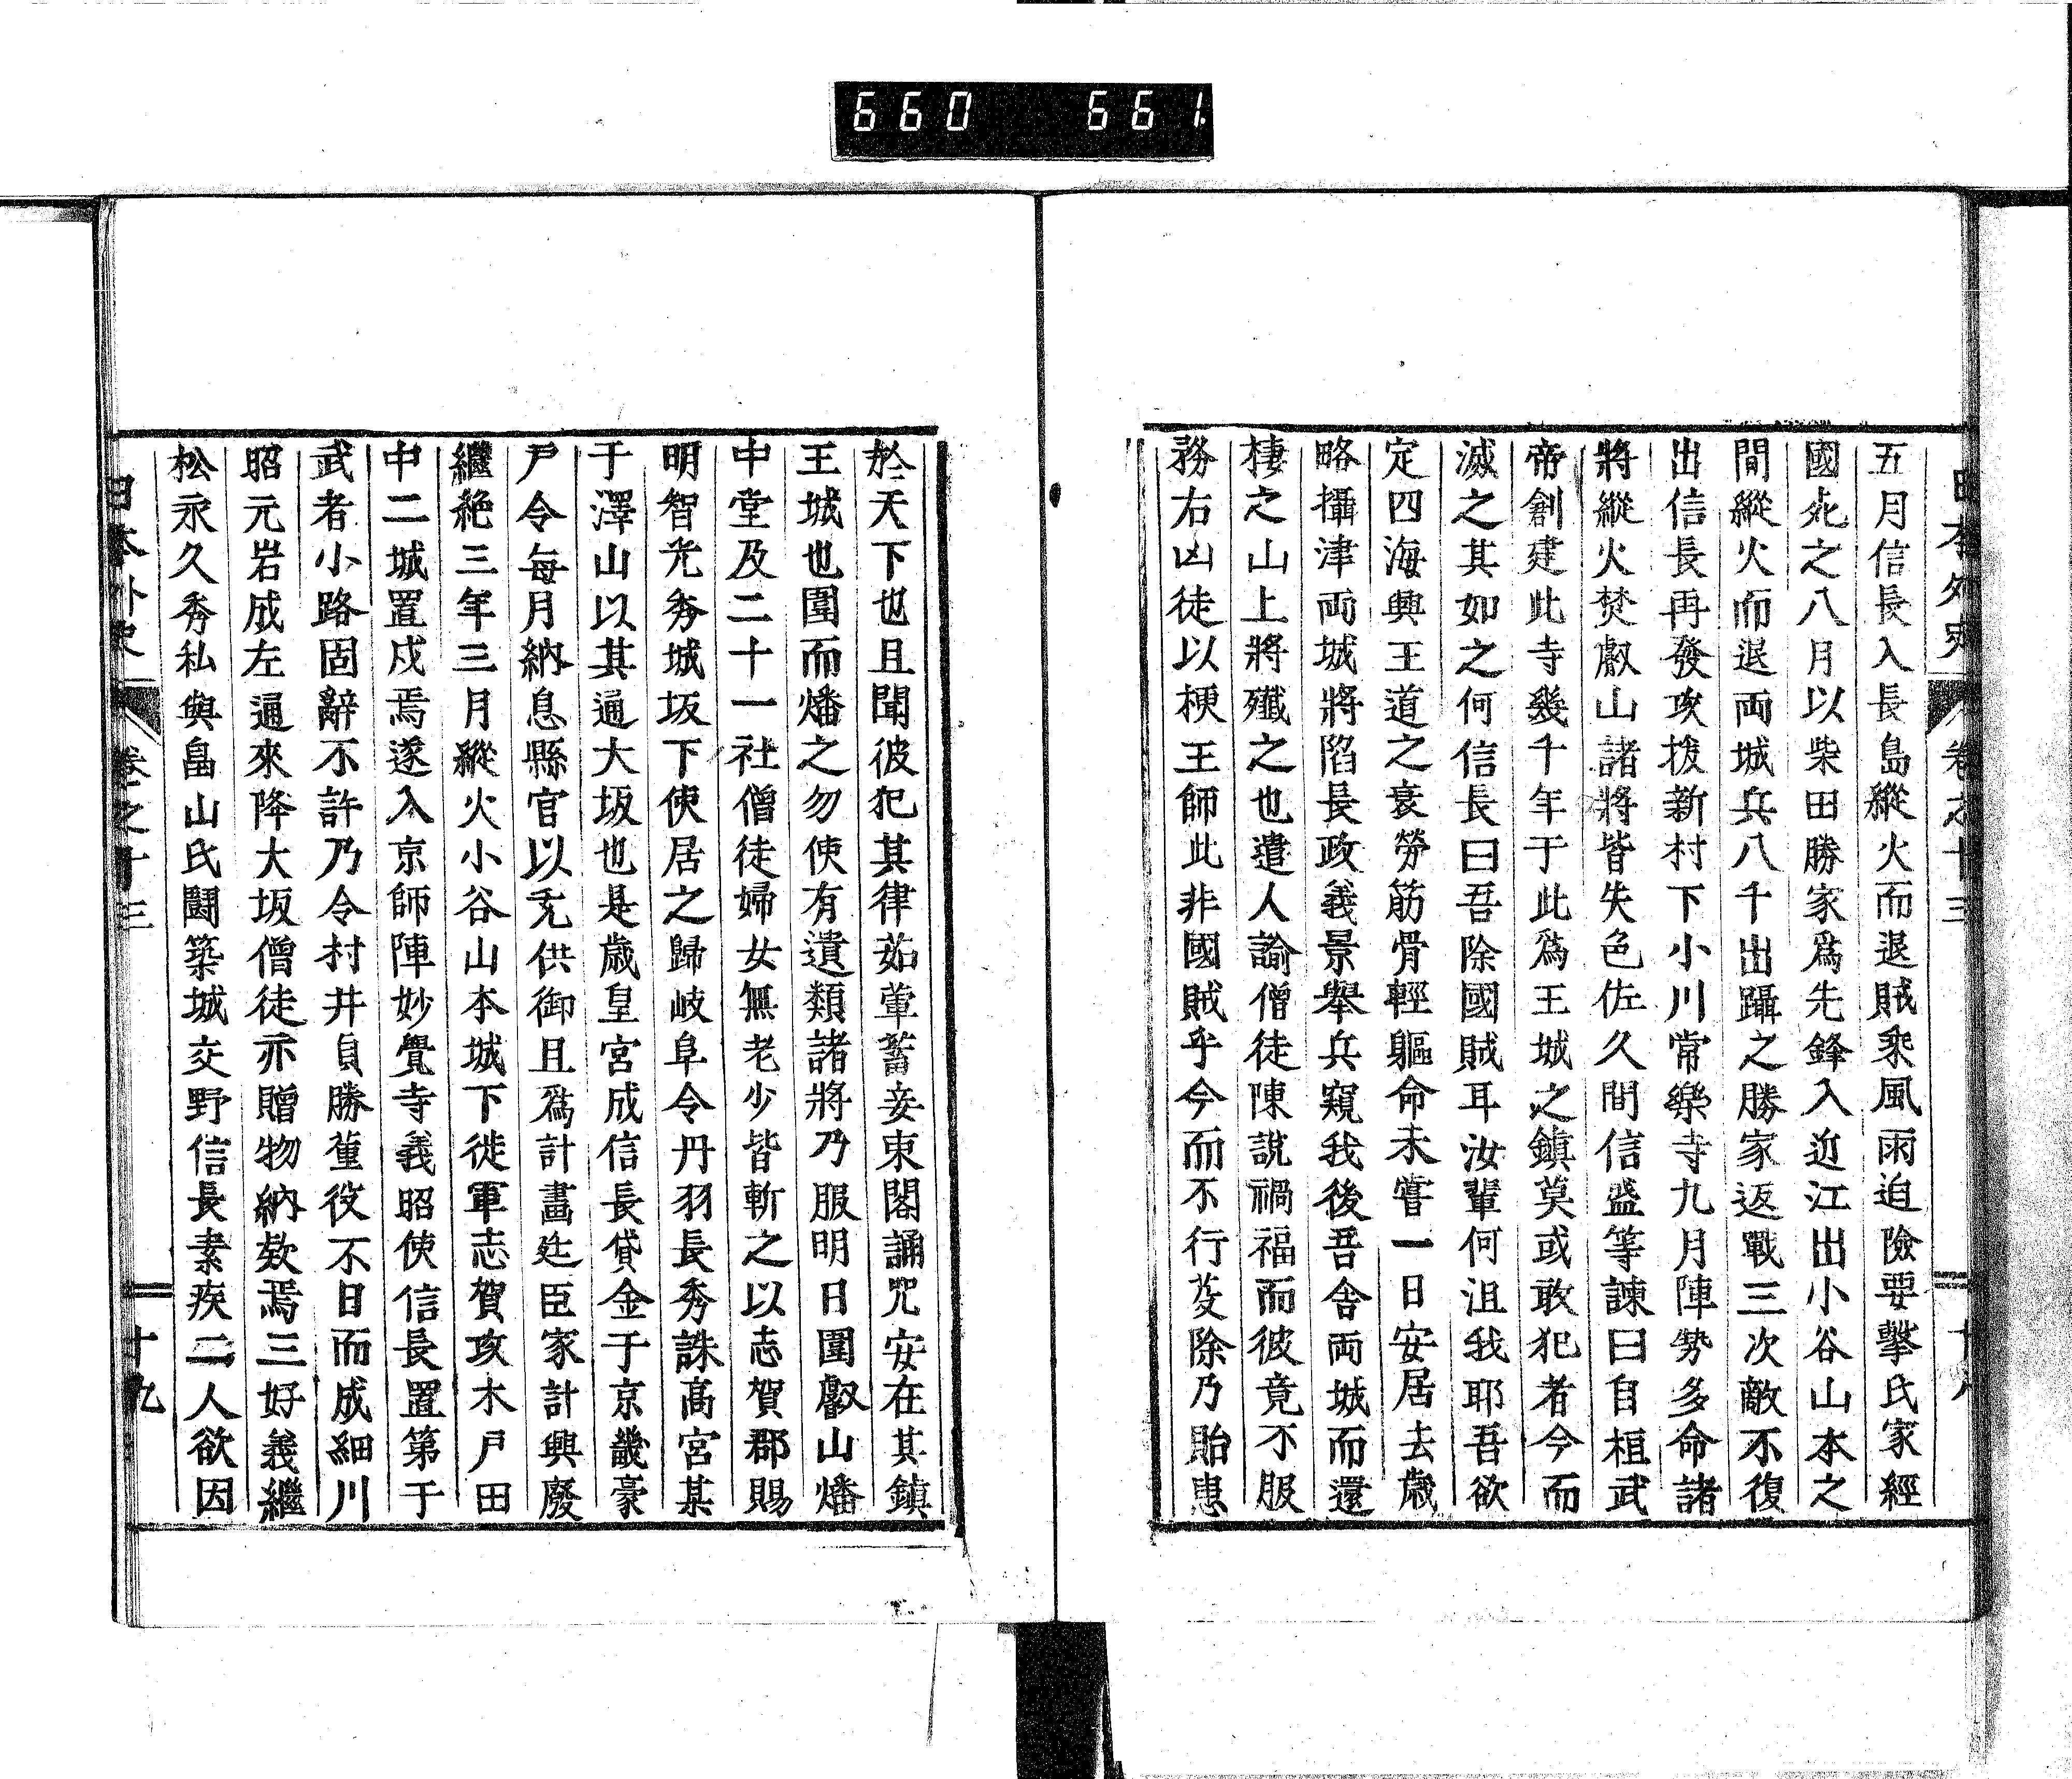 660 661
日本外史 卷之十三 十八
五月信長入長島縱火而退賊乘風雨迫險要擊氏家經
國死之八月以柴田勝家爲先鋒入近江出小谷山本之
間縱火而退兩城兵八千出躡之勝家返戰三次敵不復
出信長再發攻拔新村下小川常樂寺九月陣勢多命諸
將縱火焚叡山諸將皆失色佐久間信盛等諫曰自桓武
帝創建此寺幾千年于此爲王城之鎮莫或敢犯者今而
滅之其如之何信長曰吾除國賊耳汝輩何沮我耶吾欲
定四海興王道之衰勞筋骨輕軀命未嘗一日安居去歲
略攝津兩城將陷長政義景舉兵窺我後吾舍兩城而還
棲之山上將殲之也遣人諭僧徒陳說禍福而彼竟不服
務右凶徒以梗王師此非國賊乎今而不行芟除乃貽患
於天下也且聞彼犯其律茹葷蓄妾束閣誦咒安在其鎮
王城也圍而燔之勿使有遺類諸將乃服明日圍叡山燔
中堂及二十一社僧徒婦女無老少皆斬之以志賀郡賜
明智光秀城坂下使居之歸岐阜令丹羽長秀誅高宮某
于澤山以其通大坂也是歲皇宮成信長貸金于京畿豪
戶令每月納息縣官以充供御且爲計畫廷臣家計興廢
繼絶三年三月縱火小谷山本城下徙軍志賀攻木戶田
中二城置戍焉遂入京師陣妙覺寺義昭使信長置第于
武者小路固辭不許乃令村井貞勝董役不日而成細川
昭元岩成左通來降大坂僧徒亦贈物納欵焉三好義繼
松永久秀私與畠山氏鬪築城交野信長素疾二人欲因
日本外史 卷之十三 十九